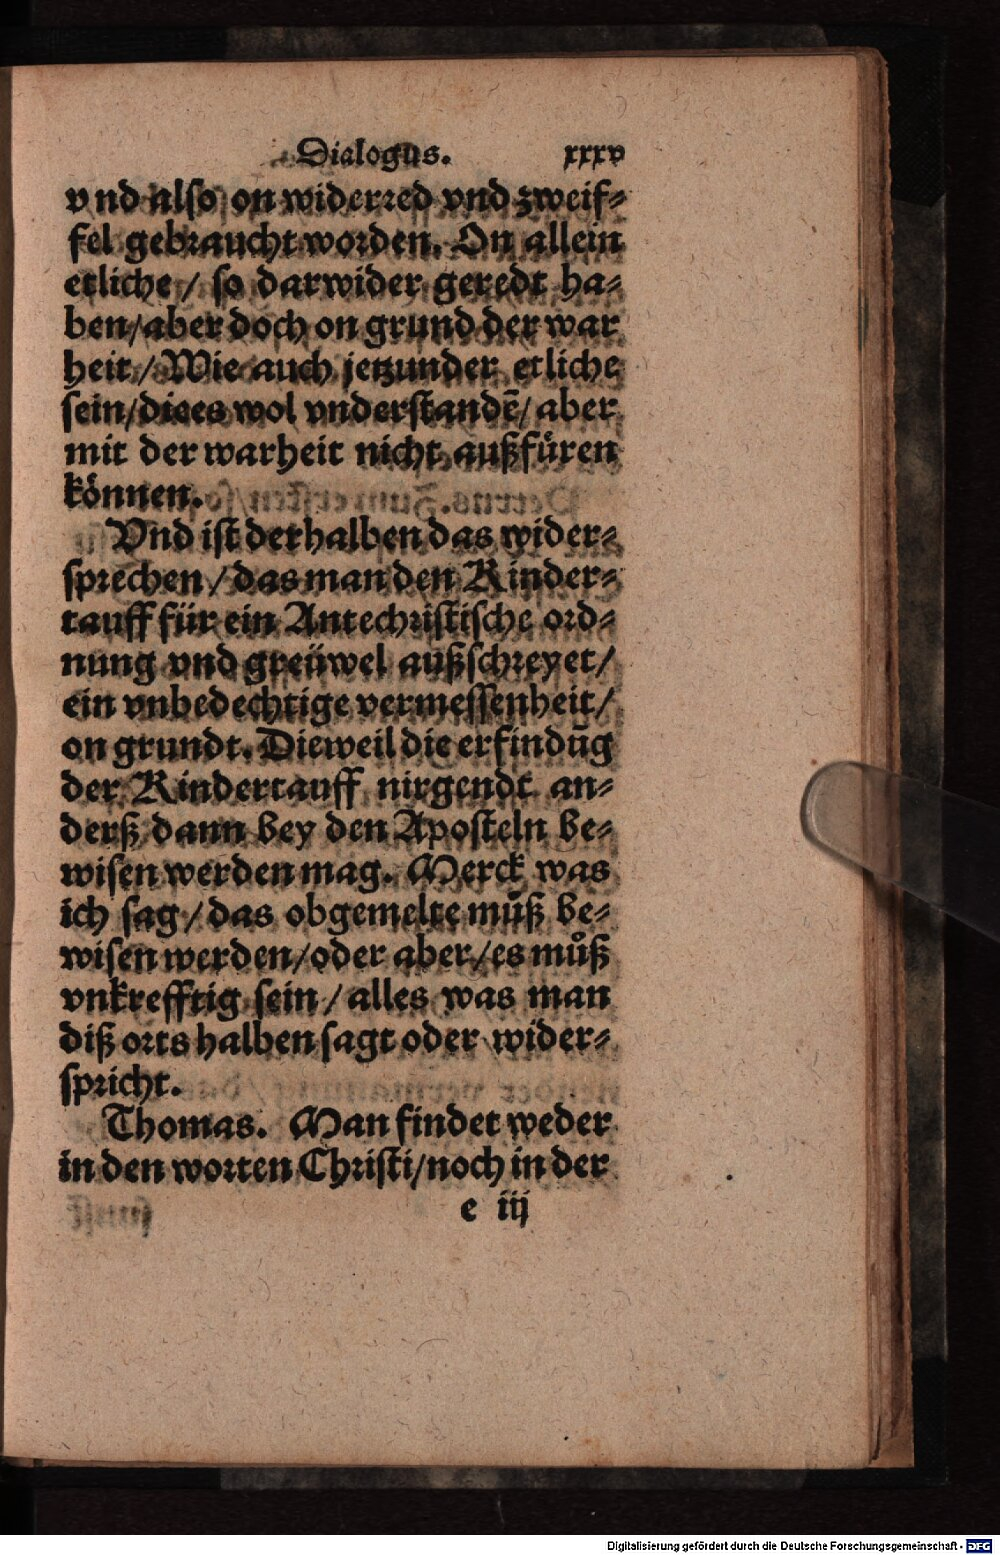 Dialogus. xxxv
vnd also on widerred vnd zweif-
fel gebraucht worden. On allein
etliche / so darwider geredt ha-
ben/aber doch on grund der war
heit / Wie auch jetzunder etliche
sein/die es wol vnderstandē/ aber
mit der warheit nicht außfüren
können.
Vnd ist derhalben das wider-
sprechen / das man den Kinder-
tauff für ein Antechristische ord-
nung vnd greüwel außschreyet/
ein vnbedechtige vermessenheit/
on grundt. Dieweil die erfindūg
der Kindertauff nirgendt an-
derß dann bey den Aposteln be-
wisen werden mag. Merck was
ich sag / das obgemelte můß be-
wisen werden/oder aber/es můß
vnkrefftig sein / alles was man
diß orts halben sagt oder wider-
spricht.
Thomas. Man findet weder
in den worten Christi/noch in der
e iij
Digitalisierung gefördert durch die Deutsche Forschungsgemeinschaft - DFG